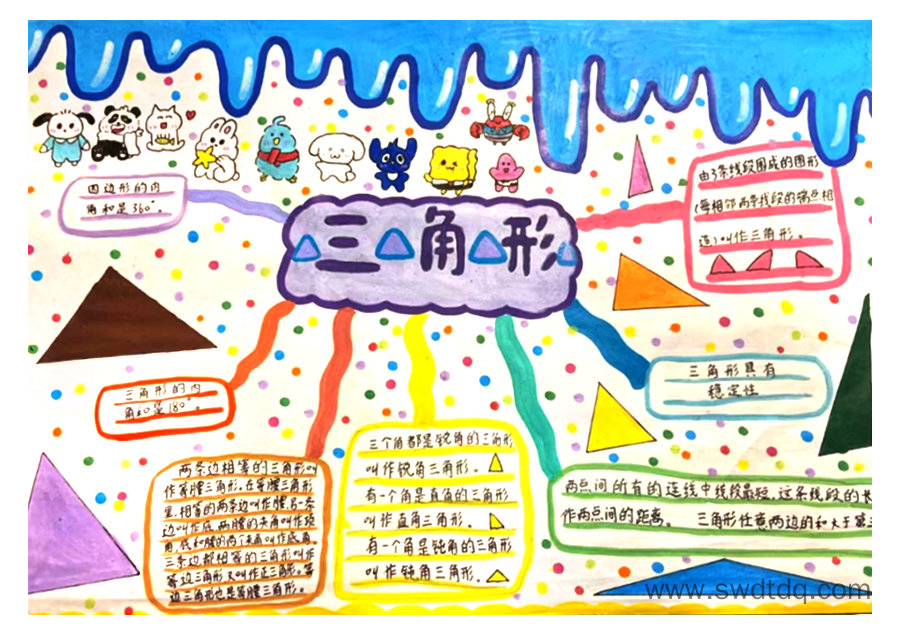 三角形
四边形的内
角和是360°。
由3条线段围成的图形
(每相邻两条线段的端点相
连)叫作三角形。
三角形的内
角和是180°。
三角形具有
稳定性
两条边相等的三角形叫
作等腰三角形,在等腰三角形
里,相等的两条边叫作腰,另一条
边叫作底,两腰的夹角叫作顶
角,底和腰的两个夹角叫作底角
三条边都相等的三角形叫作
等边三角形又叫作正三角形。等
边三角形也是等腰三角形。
三个角都是锐角的三角形
叫作锐角三角形。
有一个角是直角的三角形
叫作直角三角形。
有一个角是钝角的三角形
叫作钝角三角形。
两点间的所有的连线中线段最短,这条线段的长
作两点间的距离。 三角形任意两边的和大于第三
www.swdtdq.com